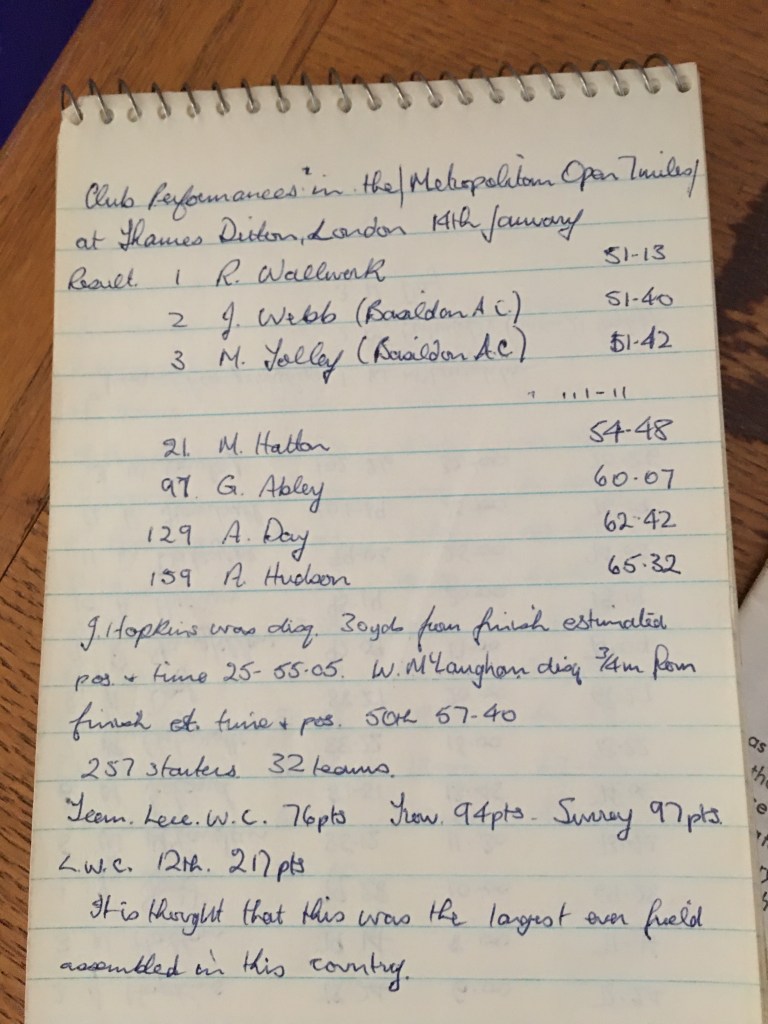 Club Performances in the/Metropolitan Open 7miles/
at Thames Ditton, London 14th January
Result. 1 R. Wallwork 51-13
2 J. Webb (Basildon A C.) 51-40
3 M. Tolley (Basildon A.C.) 51-42
21. M. Hatton 54-48
97. G. Abley 60.07
129 A. Day 62.42
159 A Hudson 65.32
J. Hopkins was disq. 30yds from finish estimated
pos. + time 25- 55.05. W. McLaughan disq 3/4m from
finish est. time + pos. 50th 57-40
257 starters. 32 teams.
Team. Leic. W.C. 76pts Trow. 94pts. Surrey 97pts.
L.W.C. 12th. 217pts
It is thought that this was the largest ever field
assembled in this country.
as
the